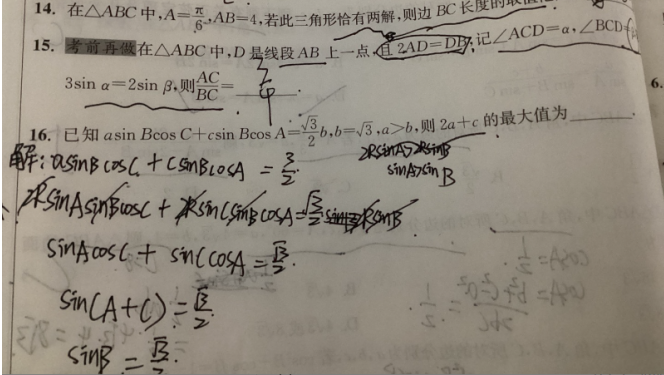 14. 在△ABC中,A=π/6,AB=4,若此三角形恰有两解,则边BC长度的取值
15. 考前再做 在△ABC中,D是线段AB上一点,且2AD=DB,记∠ACD=α,∠BCD=
3sin α=2sin β,则AC/BC=
16. 已知asin Bcos C+csin Bcos A=√3/2 b,b=√3,a>b,则2a+c的最大值为
解: asinBcosC + csinBcosA = 3/2.
2RsinA>2RsinB
sinA>sinB
2RsinAsinBcosC + 2RsinCsinBcosA=√3/2 2RsinB
sinAcosC + sinCcosA = √3/2.
sin(A+C) = √3/2.
sinB = √3/2.
6.